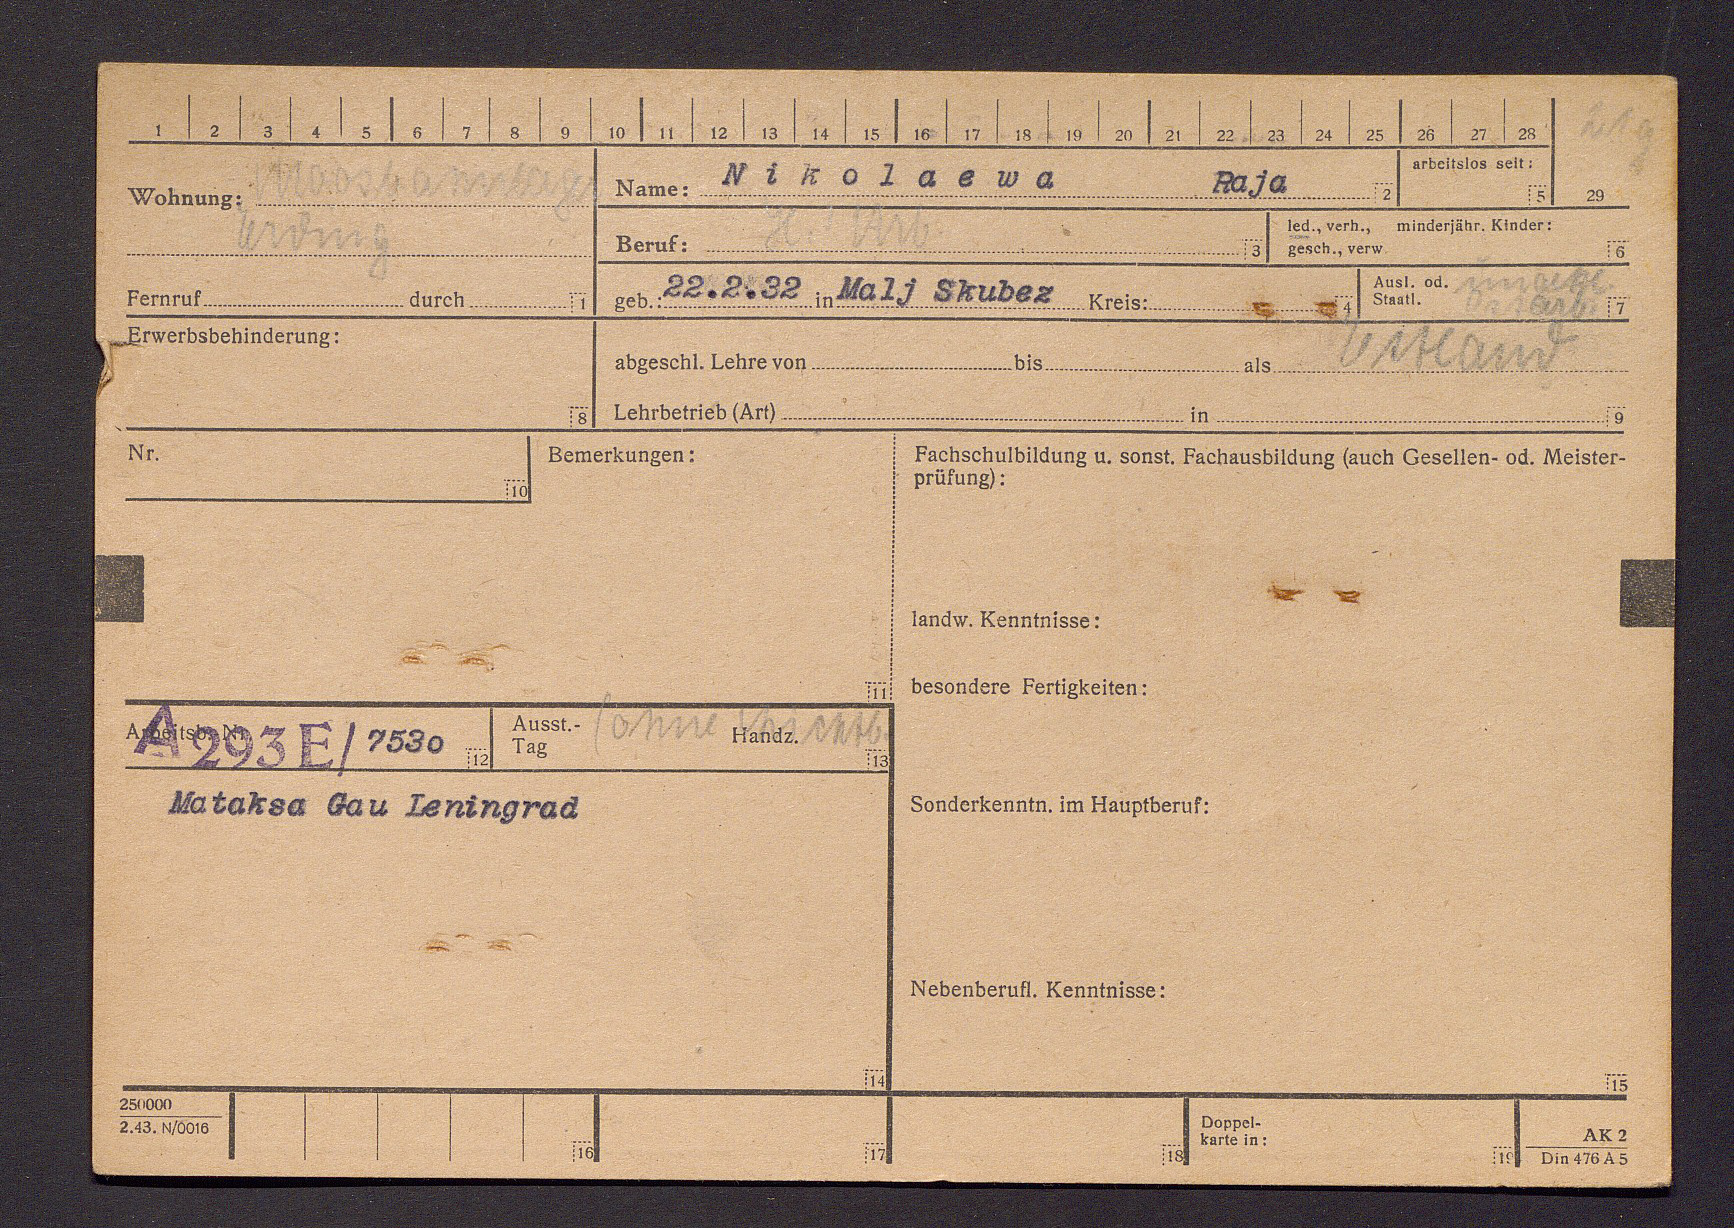 1 2 3 4 5 6 7 8 9 10 11 12 13 14 15 16 17 18 19 20 21 22 23 24 25 26 27 28
Wohnung:
Erding
Name: Nikolaewa Raja 2
arbeitslos seit: 5
29
Beruf: H. Arb. 3
led., verh., minderjähr. Kinder:
gesch., verw. 6
Fernruf durch 1
geb.: 22.2.32 in Malj Skubez Kreis: 4
Ausl. od.
Staatl. Ostarb. 7
Estland
Erwerbsbehinderung: 8
abgeschl. Lehre von bis als
Lehrbetrieb (Art) in 9
Nr. 10
Bemerkungen: 11
Fachschulbildung u. sonst. Fachausbildung (auch Gesellen- od. Meister-
prüfung):
landw. Kenntnisse:
besondere Fertigkeiten:
Arbeitsb. Nr. A 293 E/ 7530 12
Ausst.-
Tag (ohne Handz. 13
Mataksa Gau Leningrad
14
Sonderkenntn. im Hauptberuf:
Nebenberufl. Kenntnisse:
15
250000
2.43. N/0016
16 17 18
Doppel-
karte in: 19
AK 2
Din 476 A 5